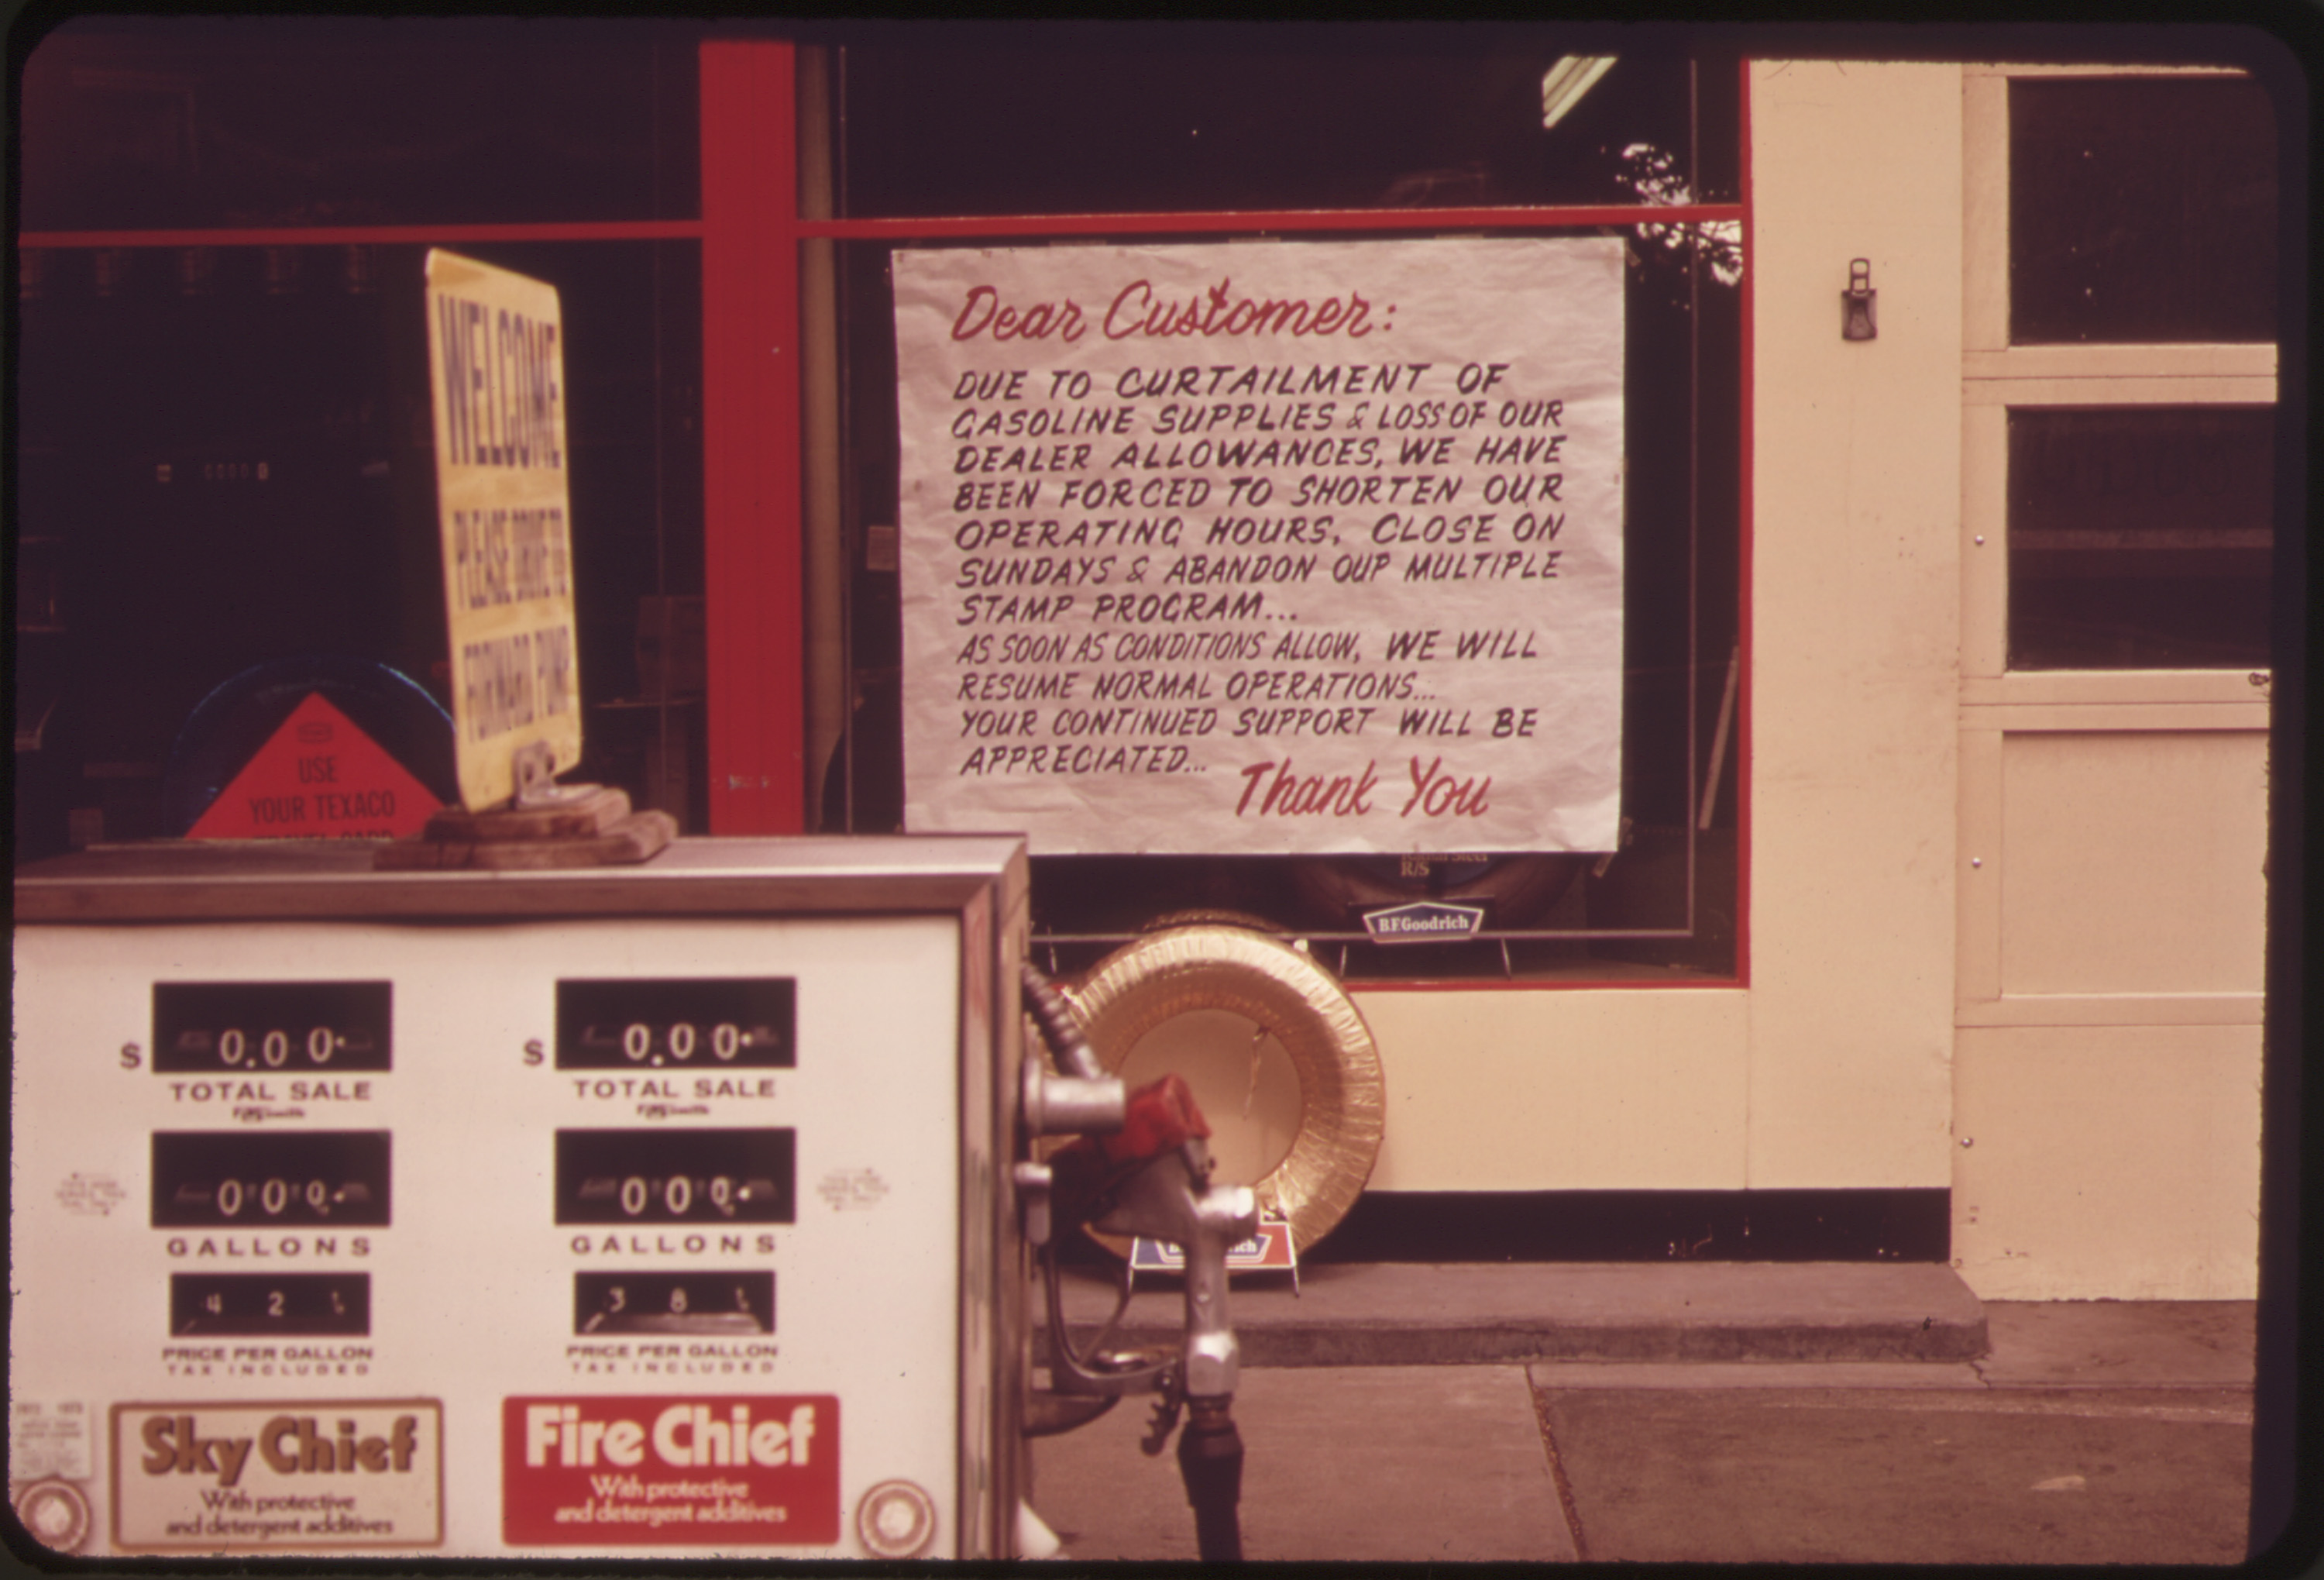 WELCOME
PLEASE DRIVE TO
FORWARD PUMP
Dear Customer:
DUE TO CURTAILMENT OF
GASOLINE SUPPLIES & LOSS OF OUR
DEALER ALLOWANCES, WE HAVE
BEEN FORCED TO SHORTEN OUR
OPERATING HOURS, CLOSE ON
SUNDAYS & ABANDON OUR MULTIPLE
STAMP PROGRAM...
AS SOON AS CONDITIONS ALLOW, WE WILL
RESUME NORMAL OPERATIONS...
YOUR CONTINUED SUPPORT WILL BE
APPRECIATED...
Thank You
USE
YOUR TEXACO
TRAVEL CARD
R/S
B.F.Goodrich
$ 0.00
TOTAL SALE
000
GALLONS
42
PRICE PER GALLON
TAX INCLUDED
Sky Chief
With protective
and detergent additives
$ 0.00
TOTAL SALE
000
GALLONS
38
PRICE PER GALLON
TAX INCLUDED
Fire Chief
With protective
and detergent additives